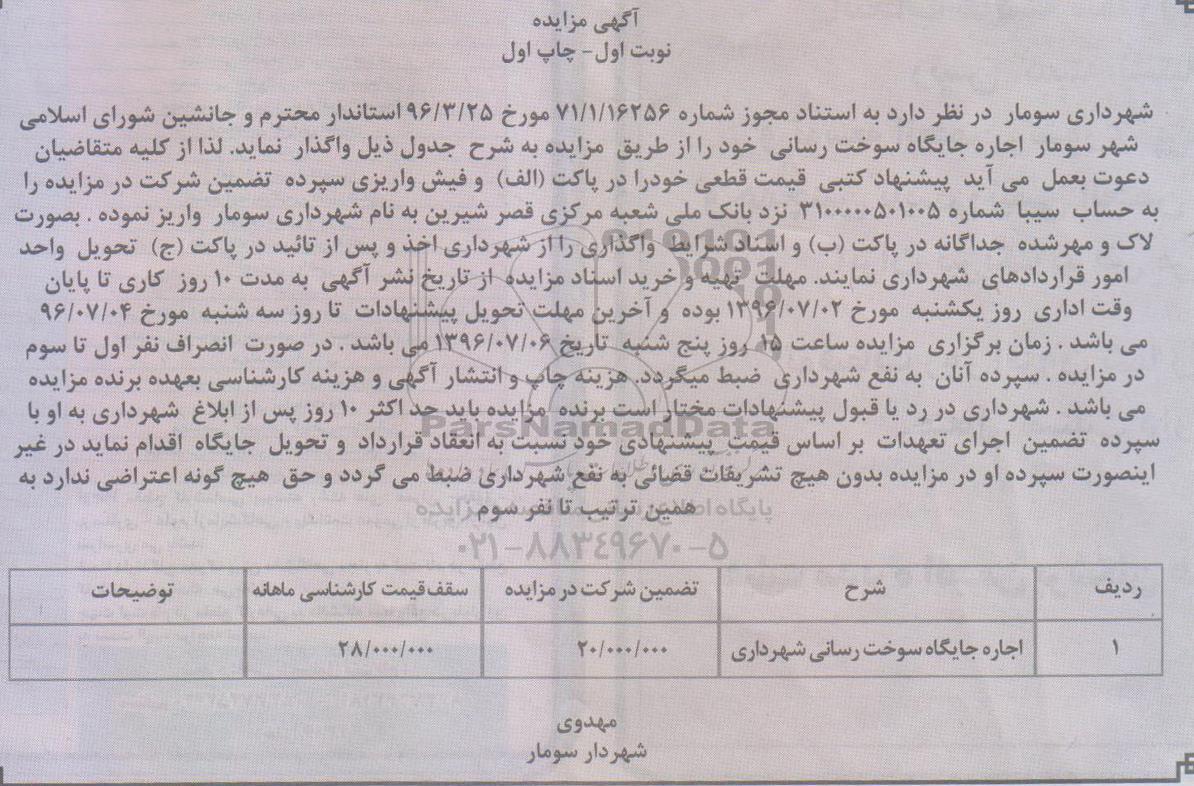 آگهی مزایده
نوبت اول- چاپ اول
شهرداری سومار در نظر دارد به استناد مجوز شماره ۷۱/۱/۱۶۲۵۶ مورخ ۹۶/۳/۲۵ استاندار محترم و جانشین شورای اسلامی
شهر سومار اجاره جایگاه سوخت رسانی خود را از طریق مزایده به شرح جدول ذیل واگذار نماید. لذا از کلیه متقاضیان
دعوت بعمل می آید پیشنهاد کتبی قیمت قطعی خودرا در پاکت (الف) و فیش واریزی سپرده تضمین شرکت در مزایده را
به حساب سیبا شماره ۳۱۰۰۰۰۰۵۰۱۰۰۵ نزد بانک ملی شعبه مرکزی قصر شیرین به نام شهرداری سومار واریز نموده . بصورت
لاک و مهرشده جداگانه در پاکت (ب) و اسناد شرایط واگذاری را از شهرداری اخذ و پس از تائید در پاکت (ج) تحویل واحد
امور قراردادهای شهرداری نمایند. مهلت تهیه و خرید اسناد مزایده از تاریخ نشر آگهی به مدت ۱۰ روز کاری تا پایان
وقت اداری روز یکشنبه مورخ ۱۳۹۶/۰۷/۰۲ بوده و آخرین مهلت تحویل پیشنهادات تا روز سه شنبه مورخ ۹۶/۰۷/۰۴
می باشد . زمان برگزاری مزایده ساعت ۱۵ روز پنج شنبه تاریخ ۱۳۹۶/۰۷/۰۶ می باشد . در صورت انصراف نفر اول تا سوم
در مزایده . سپرده آنان به نفع شهرداری ضبط میگردد. هزینه چاپ و انتشار آگهی و هزینه کارشناسی بعهده برنده مزایده
می باشد . شهرداری در رد یا قبول پیشنهادات مختار است برنده مزایده باید حد اکثر ۱۰ روز پس از ابلاغ شهرداری به او با
سپرده تضمین اجرای تعهدات بر اساس قیمت پیشنهادی خود نسبت به انعقاد قرارداد و تحویل جایگاه اقدام نماید در غیر
اینصورت سپرده او در مزایده بدون هیچ تشریفات قضائی به نفع شهرداری ضبط می گردد و حق هیچ گونه اعتراضی ندارد به
همین ترتیب تا نفر سوم
ParsNamadData
۰۲۱-۸۸۳۴۹۶۷۰-۵
ردیف شرح تضمین شرکت در مزایده سقف قیمت کارشناسی ماهانه توضیحات
۱ اجاره جایگاه سوخت رسانی شهرداری ۲۰/۰۰۰/۰۰۰ ۲۸/۰۰۰/۰۰۰
مهدوی
شهردار سومار